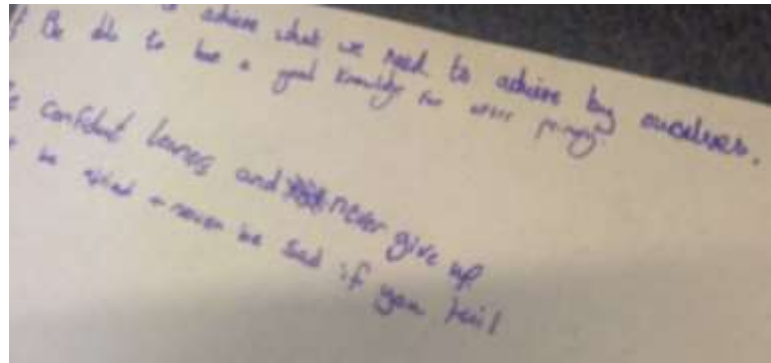 achieve what we need to achieve by ourselves.
Be able to have a good knowledge for after primary.
confident learners and never give up
be and never be sad if you fail